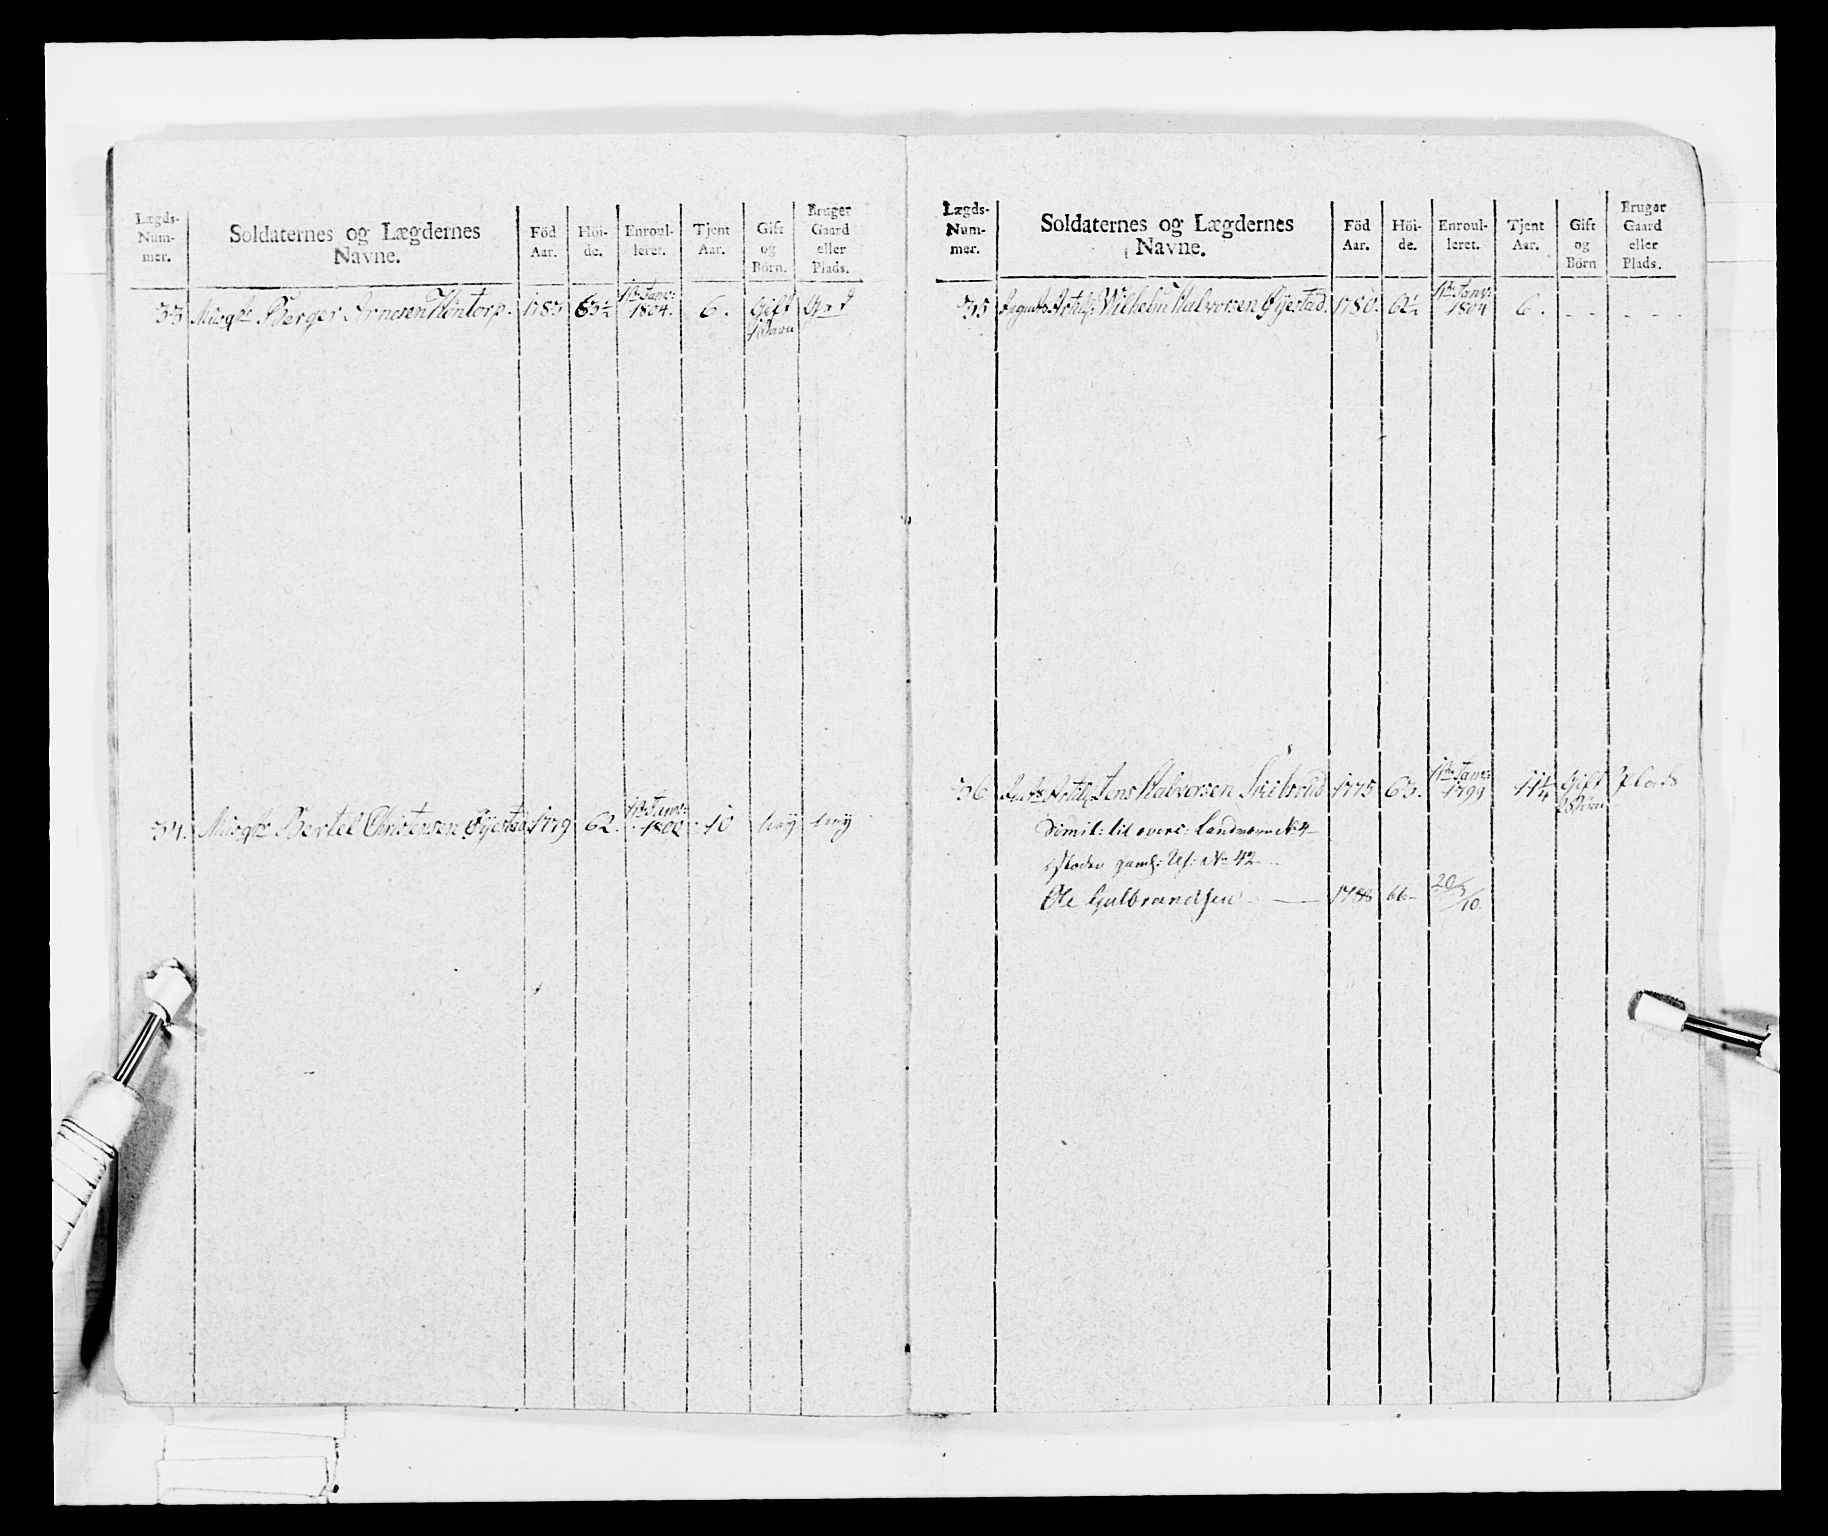 Lægds-
Num-
mer.
Soldaternes og Lægdernes
Navne.
Föd
Aar.
Höi-
de.
Enroul-
leret.
Tjent
Aar.
Gift
og
Börn.
Bruger
Gaard
eller
Plads.
33 Musqt Berger Arnesen Kontorp. 1783 63½ 1te Janv: 1804. 6. Gift 1 Barn Gord
34. Musqt Bertel Christensen Öyestad 1779 62. 1te Janv: 1800 10
Lægds-
Num-
mer.
Soldaternes og Lægdernes
Navne.
Föd
Aar.
Höi-
de.
Enroul-
leret.
Tjent
Aar.
Gift
og
Börn
Bruger
Gaard
eller
Plads.
35 Wilhelm Halvorsen Öyestad. 1780. 62½ 1te Janv: 1804 6. - - - - -
36 Jens Halvorsen 1775 63. 1te Janv: 1799 11¼ Gift Plads
Dimit: til overc: Landværn No 4
No 42
Ole Gulbrandsen 1788 66 20/3/10.